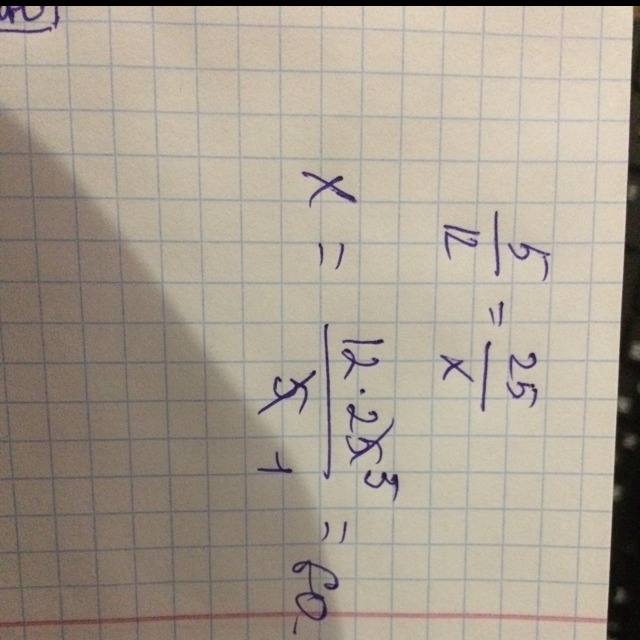 5/12 = 25/x
x = 12·25⁵/5₁ = 60